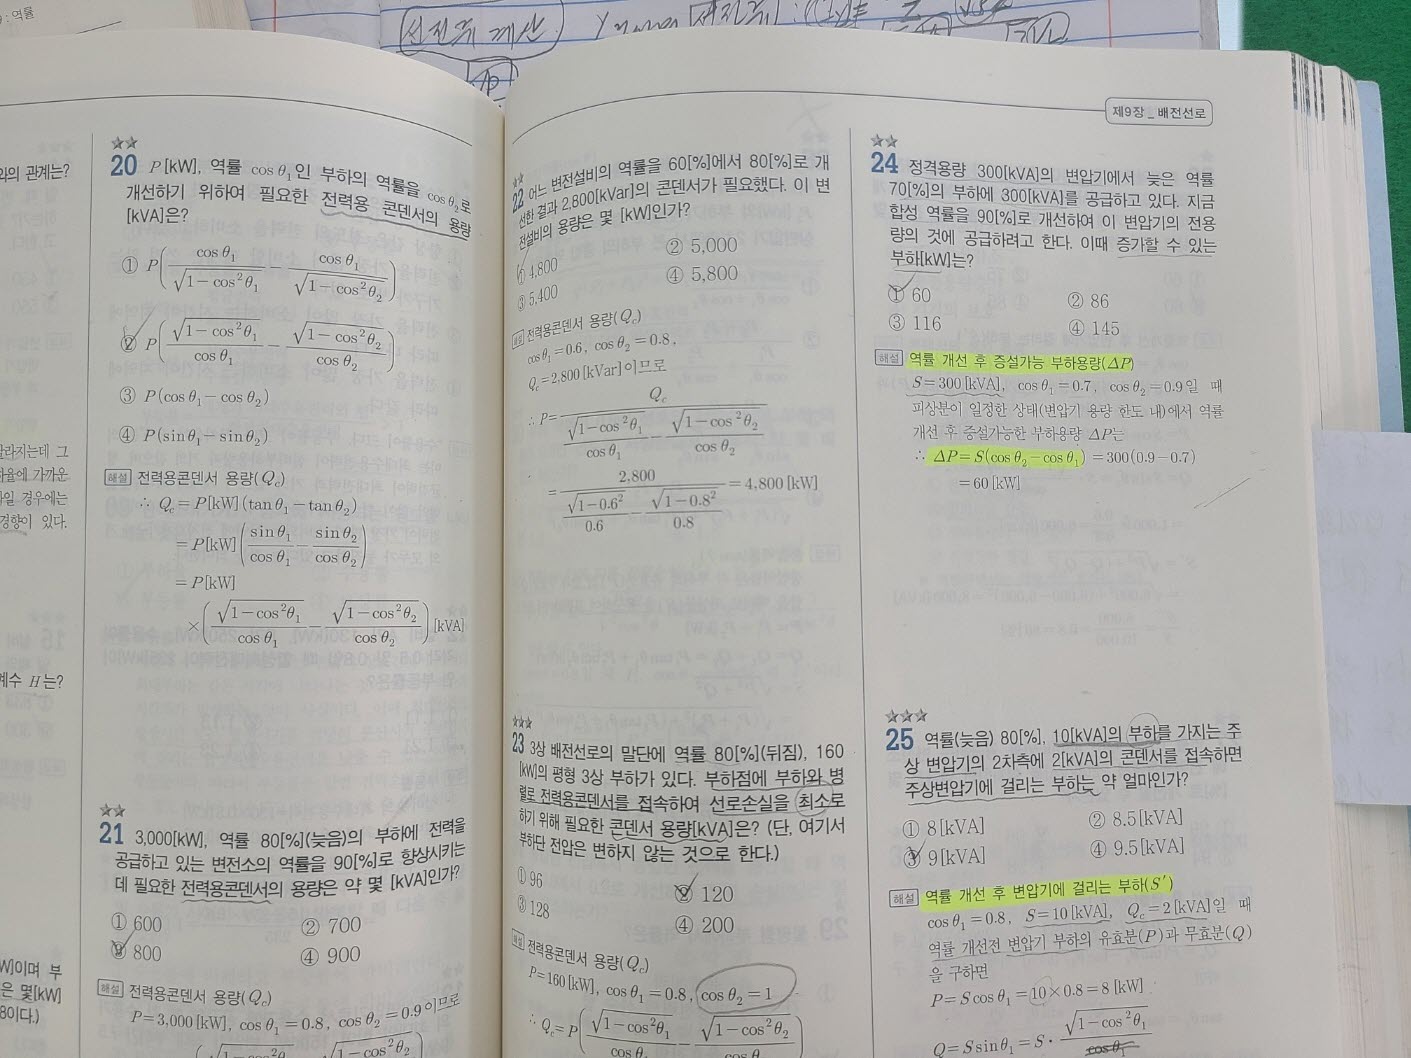 9 : 역률
선전류 계산
와의 관계는?
달라지는데 그
하율에 가까운
하일 경우에는
경향이 있다.
계수 H는?
W]이며 부
은 몇[kW]
8이다.)
★★
20 P[kW], 역률 cosθ₁인 부하의 역률을 cosθ₂로
개선하기 위하여 필요한 전력용 콘덴서의 용량
[kVA]은?
① P(cosθ₁/√(1-cos²θ₁) - cosθ₁/√(1-cos²θ₂))
② P(√(1-cos²θ₁)/cosθ₁ - √(1-cos²θ₂)/cosθ₂)
③ P(cosθ₁-cosθ₂)
④ P(sinθ₁-sinθ₂)
해설 전력용콘덴서 용량(Q_c)
∴ Q_c=P[kW](tanθ₁-tanθ₂)
=P[kW](sinθ₁/cosθ₁ - sinθ₂/cosθ₂)
=P[kW]
×(√(1-cos²θ₁)/cosθ₁ - √(1-cos²θ₂)/cosθ₂)[kVA]
★★
21 3,000[kW], 역률 80[%](늦음)의 부하에 전력을
공급하고 있는 변전소의 역률을 90[%]로 향상시키는
데 필요한 전력용콘덴서의 용량은 약 몇 [kVA]인가?
① 600 ② 700
③ 800 ④ 900
해설 전력용콘덴서 용량(Q_c)
P=3,000[kW], cosθ₁=0.8, cosθ₂=0.9이므로
√(1-cos²θ₁) √(1-cos²θ₂)
★★
22 어느 변전설비의 역률을 60[%]에서 80[%]로 개
선한 결과 2,800[kVar]의 콘덴서가 필요했다. 이 변
전설비의 용량은 몇 [kW]인가?
① 4,800 ② 5,000
③ 5,400 ④ 5,800
해설 전력용콘덴서 용량(Q_c)
cosθ₁=0.6, cosθ₂=0.8,
Q_c=2,800[kVar]이므로
∴ P=Q_c/(√(1-cos²θ₁)/cosθ₁ - √(1-cos²θ₂)/cosθ₂)
=2,800/(√(1-0.6²)/0.6 - √(1-0.8²)/0.8)=4,800[kW]
★★★
23 3상 배전선로의 말단에 역률 80[%](뒤짐), 160
[kW]의 평형 3상 부하가 있다. 부하점에 부하와 병
렬로 전력용콘덴서를 접속하여 선로손실을 최소로
하기 위해 필요한 콘덴서 용량[kVA]은? (단, 여기서
부하단 전압은 변하지 않는 것으로 한다.)
① 96 ② 120
③ 128 ④ 200
해설 전력용콘덴서 용량(Q_c)
P=160[kW], cosθ₁=0.8, cosθ₂=1
∴ Q_c=P(√(1-cos²θ₁)/cosθ₁ - √(1-cos²θ₂)/cosθ₂)
제9장_배전선로
★★
24 정격용량 300[kVA]의 변압기에서 늦은 역률
70[%]의 부하에 300[kVA]를 공급하고 있다. 지금
합성 역률을 90[%]로 개선하여 이 변압기의 전용
량의 것에 공급하려고 한다. 이때 증가할 수 있는
부하[kW]는?
① 60 ② 86
③ 116 ④ 145
해설 역률 개선 후 증설가능 부하용량(ΔP)
S=300[kVA], cosθ₁=0.7, cosθ₂=0.9일 때
피상분이 일정한 상태(변압기 용량 한도 내)에서 역률
개선 후 증설가능한 부하용량 ΔP는
∴ ΔP=S(cosθ₂-cosθ₁)=300(0.9-0.7)
=60[kW]
★★★
25 역률(늦음) 80[%], 10[kVA]의 부하를 가지는 주
상 변압기의 2차측에 2[kVA]의 콘덴서를 접속하면
주상변압기에 걸리는 부하는 약 얼마인가?
① 8[kVA] ② 8.5[kVA]
③ 9[kVA] ④ 9.5[kVA]
해설 역률 개선 후 변압기에 걸리는 부하(S′)
cosθ₁=0.8, S=10[kVA], Q_c=2[kVA]일 때
역률 개선전 변압기 부하의 유효분(P)과 무효분(Q)
을 구하면
P=Scosθ₁=10×0.8=8[kW]
Q=Ssinθ₁=S·√(1-cos²θ₁)/cosθ₁